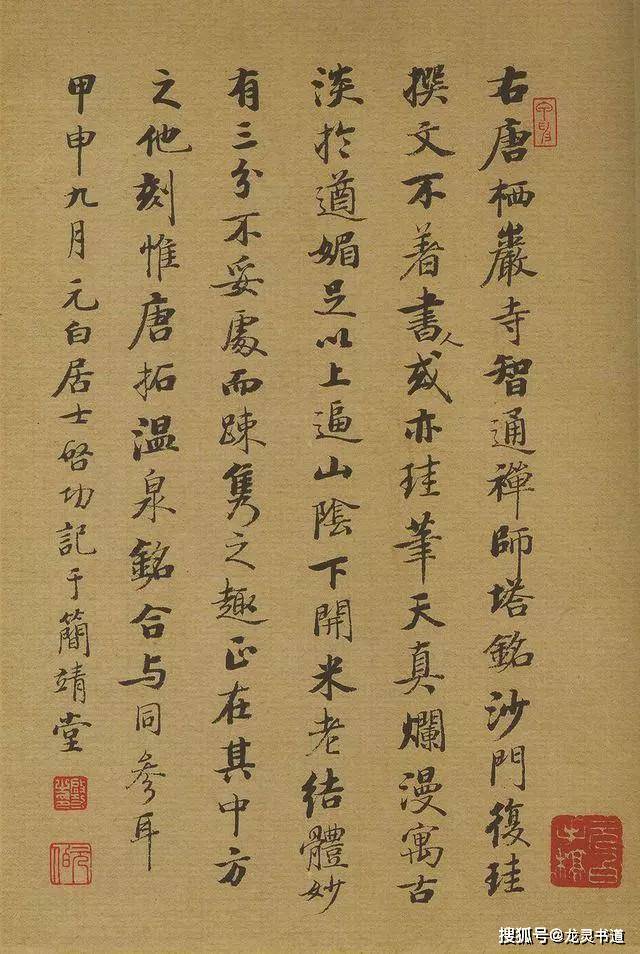 右唐栖巖寺智通禪師塔銘沙門復珪
撰文不著書人或亦珪筆天真爛漫寓古
淡於遒媚足以上逼山陰下開米老結體妙
有三分不妥處而踈隽之趣正在其中方
之他刻惟唐拓温泉銘合与同參耳
甲申九月元白居士啓功記于簡靖堂
搜狐号@龙灵书道